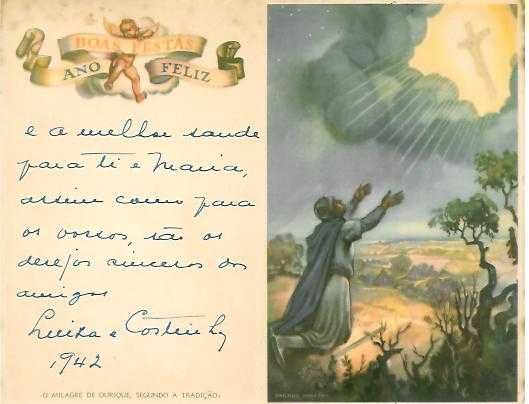 BOAS FESTAS
ANO FELIZ
e a melhor saude
para ti e Maria,
assim como para
os vossos, são os
desejos sinceros dos
amigos
Luiza e
1942
«O MILAGRE DE OURIQUE, SEGUNDO A TRADIÇÃO»